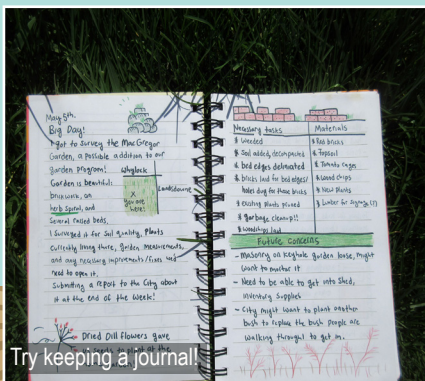 May 5th.
Big Day!
I got to survey the MacGregor
Garden, a possible addition to our
garden program!
Garden is beautiful:
brickwork, an
herb spiral, and
several raised beds.
I surveyed it for soil quality, plants
currently living there, garden measurements,
and any necessary improvements/fixes we'd
need to open it.
Submitting a report to the City about
it at the end of the week!
Whytock
X
you are
here!
Lansdowne
Dried Dill flowers gave
seeds to plant at the
Necessary tasks
* Weeded
* Soil added, decompacted
* bed edges delineated
* bricks laid for bed edges/
holes dug for those bricks
* existing plants pruned
* garbage cleanup!!
* woodchips laid
Materials
* Red bricks
* Topsoil
* Tomato cages
* Wood chips
* New plants
* Lumber for signage(?)
Future Concerns
- Masonry on keyhole garden loose, might
want to monitor it
- Need to be able to get into shed,
inventory supplies
- City might want to plant another
bush to replace the bush people are
walking through to get in.
Try keeping a journal!